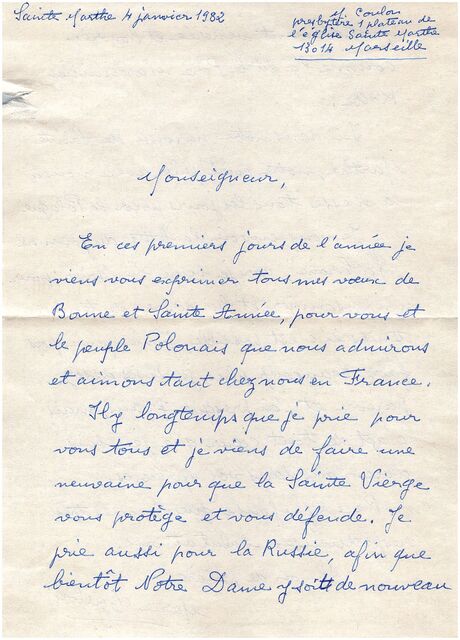 Sainte Marthe 4 janvier 1982
M. Coulon
presbytère 1 plateau de
l'église Sainte Marthe
13014 Marseille
Monseigneur,
En ces premiers jours de l'année je
viens vous exprimer tous mes vœux de
Bonne et Sainte Année, pour vous et
le peuple Polonais que nous admirons
et aimons tant chez nous en France.
Il y longtemps que je prie pour
vous tous et je viens de faire une
neuvaine pour que la Sainte Vierge
vous protège et vous défende. Je
prie aussi pour la Russie, afin que
bientôt Notre Dame y soit de nouveau